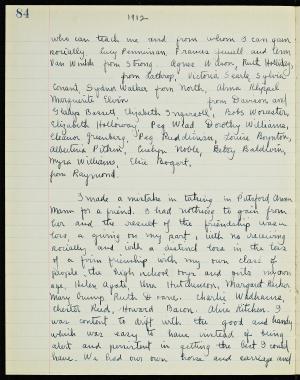 84
1912
who can teach me and from whom I can gain
socially. Lucy Penniman, Frances Jewell and Fern
Van Winkle from Strong. Agnes Wilson, Ruth Holliday,
from Lathrop, Victoria Searle, Sylvia
Conant, Sydnor Walker from North, Alma Klipfel
Marguerite Elvin from Davison, and
Gladys Bassett, Elizabeth Ingersoll, Bobs Worcester,
Elizabeth Holloway, Peg Weed, Dorothy Williams,
Eleanor Greenberg, Peg Ruddiman, Louise Boynton,
Albertina Pitkin, Evelyn Noble, Betsy Baldwin,
Myra Williams, Elsie Bogert,
from Raymond.
I made a mistake in taking in Pittsford
Mann for a friend. I had nothing to gain from
her and the result of the friendship was a
loss, a giving on my part with no receiving
socially, and with a distinct loss in the loss
of a firm friendship with my own class of
people, the high school boys and girls my own
age, Helen Agate, Ann Hutchinson, Margaret
Mary Crump, Ruth Charlie Wadhams,
Chester Reid, Howard Bacon, Alice Kitchen. I
was content to drift with the good and handy
which was easy to have instead of being
alert and persistent in getting the best I could
have. We had our own horse and carriage and